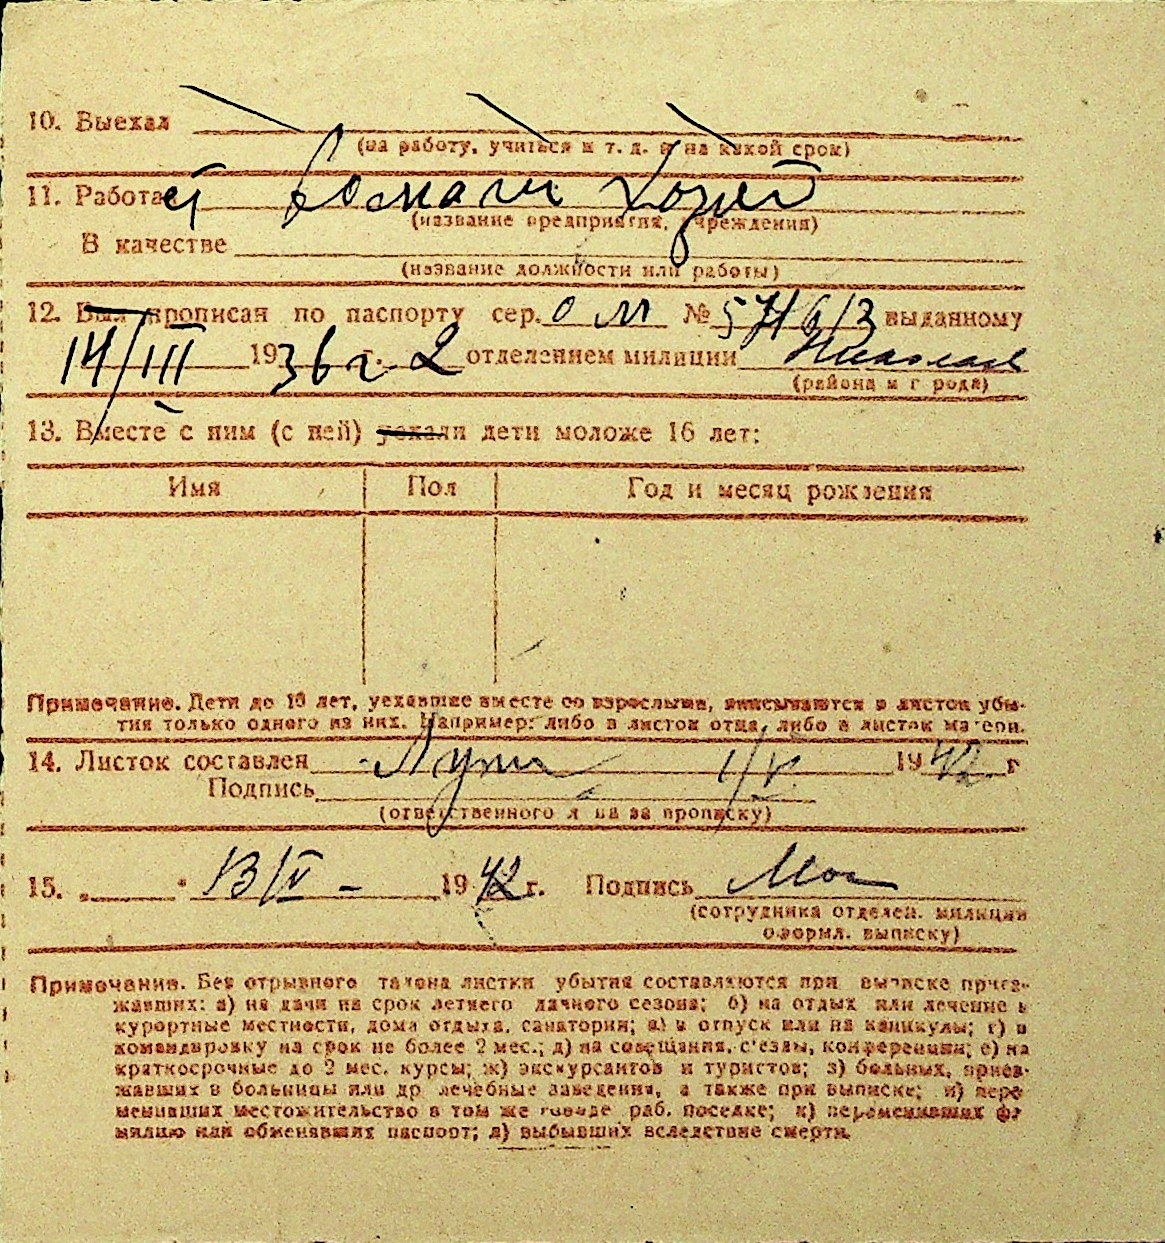 10. Выехал
(на работу, учиться и т. д. и на какой срок)
11. Работает домаш хозяй
(название предприятия, учреждения)
В качестве
(название должности или работы)
12. Был прописан по паспорту сер. О М № выданному
14/III 1936 г. 2 отделением милиции
(района и города)
13. Вместе с ним (с ней) уехали дети моложе 16 лет:
Имя Пол Год и месяц рождения
Примечание. Дети до 16 лет, уехавшие вместе со взрослыми, вписываются в листок убы-
тия только одного из них. Например: либо в листок отца, либо в листок матери.
14. Листок составлен 1/V 1942 г
Подпись
(ответственного лица за прописку)
15. „ " 13/IV - 1942 г. Подпись
(сотрудника отделен. милиции
оформл. выписку)
Примечание. Без отрывного талона листки убытия составляются при выписке приез-
жавших: а) на дачи на срок летнего дачного сезона; б) на отдых или лечение в
курортные местности, дома отдыха, санатории; в) в отпуск или на каникулы; г) в
командировку на срок не более 2 мес.; д) на совещания, с'езды, конференции; е) на
краткосрочные до 2 мес. курсы; ж) экскурсантов и туристов; з) больных, приез-
жавших в больницы или др лечебные заведения, а также при выписке; и) пере
менивших местожительство в том же городе раб. поселке; к) переменивших фа
милию или обменявших паспорт; л) выбывших вследствие смерти.